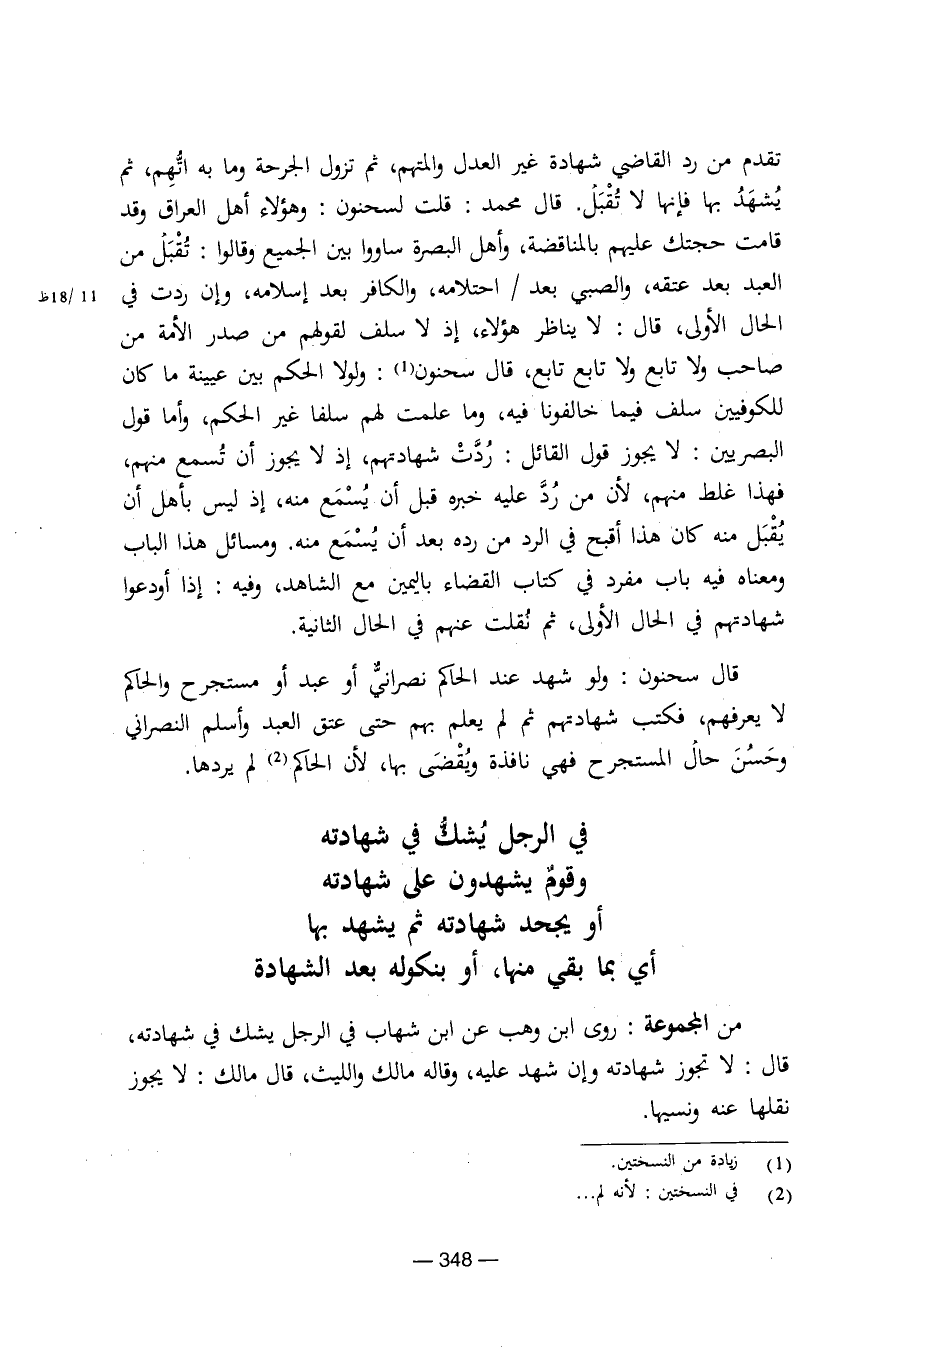 تقدم من رد القاضي شهادة غير العدل والمتهم، ثم تزول الجرحة وما به اتُّهِم، ثم
يُشهَدُ بها فإنها لا تُقْبَلُ. قال محمد : قلت لسحنون : وهؤلاء أهل العراق وقد
قامت حجتك عليهم بالمناقضة، وأهل البصرة ساووا بين الجميع وقالوا : تُقْبَلُ من
العبد بعد عتقه، والصبي بعد / احتلامه، والكافر بعد إسلامه، وإن ردت في
11 /18ظ
الحال الأولى، قال : لا يناظر هؤلاء، إذ لا سلف لقولهم من صدر الأمة من
صاحب ولا تابع ولا تابع تابع، قال سحنون(1) : ولولا الحكم بين عيينة ما كان
للكوفيين سلف فيما خالفونا فيه، وما علمت لهم سلفا غير الحكم، وأما قول
البصريين : لا يجوز قول القائل : رُدَّتْ شهادتهم، إذ لا يجوز أن تُسمع منهم،
فهذا غلط منهم، لأن من رُدَّ عليه خبره قبل أن يُسْمَع منه، إذ ليس بأهل أن
يُقْبَل منه كان هذا أقبح في الرد من رده بعد أن يُسْمَع منه. ومسائل هذا الباب
ومعناه فيه باب مفرد في كتاب القضاء باليمين مع الشاهد، وفيه : إذا أودعوا
شهادتهم في الحال الأولى، ثم نُقلت عنهم في الحال الثانية.
قال سحنون : ولو شهد عند الحاكم نصرانيٌّ أو عبد أو مستجرح والحاكم
لا يعرفهم، فكتب شهادتهم ثم لم يعلم بهم حتى عتق العبد وأسلم النصراني
وحَسُنَ حالُ المستجرح فهي نافذة ويُقْضَى بها، لأن الحاكم(2) لم يردها.
في الرجل يُشكُّ في شهادته
وقومٌ يشهدون على شهادته
أو يجحد شهادته ثم يشهد بها
أي بما بقي منها، أو بنكوله بعد الشهادة
من المجموعة : روى ابن وهب عن ابن شهاب في الرجل يشك في شهادته،
قال : لا تجوز شهادته وإن شهد عليه، وقاله مالك والليث، قال مالك : لا يجوز
نقلها عنه ونسيها.
(1) زيادة من النسختين.
(2) في النسختين : لأنه لم...
— 348 —